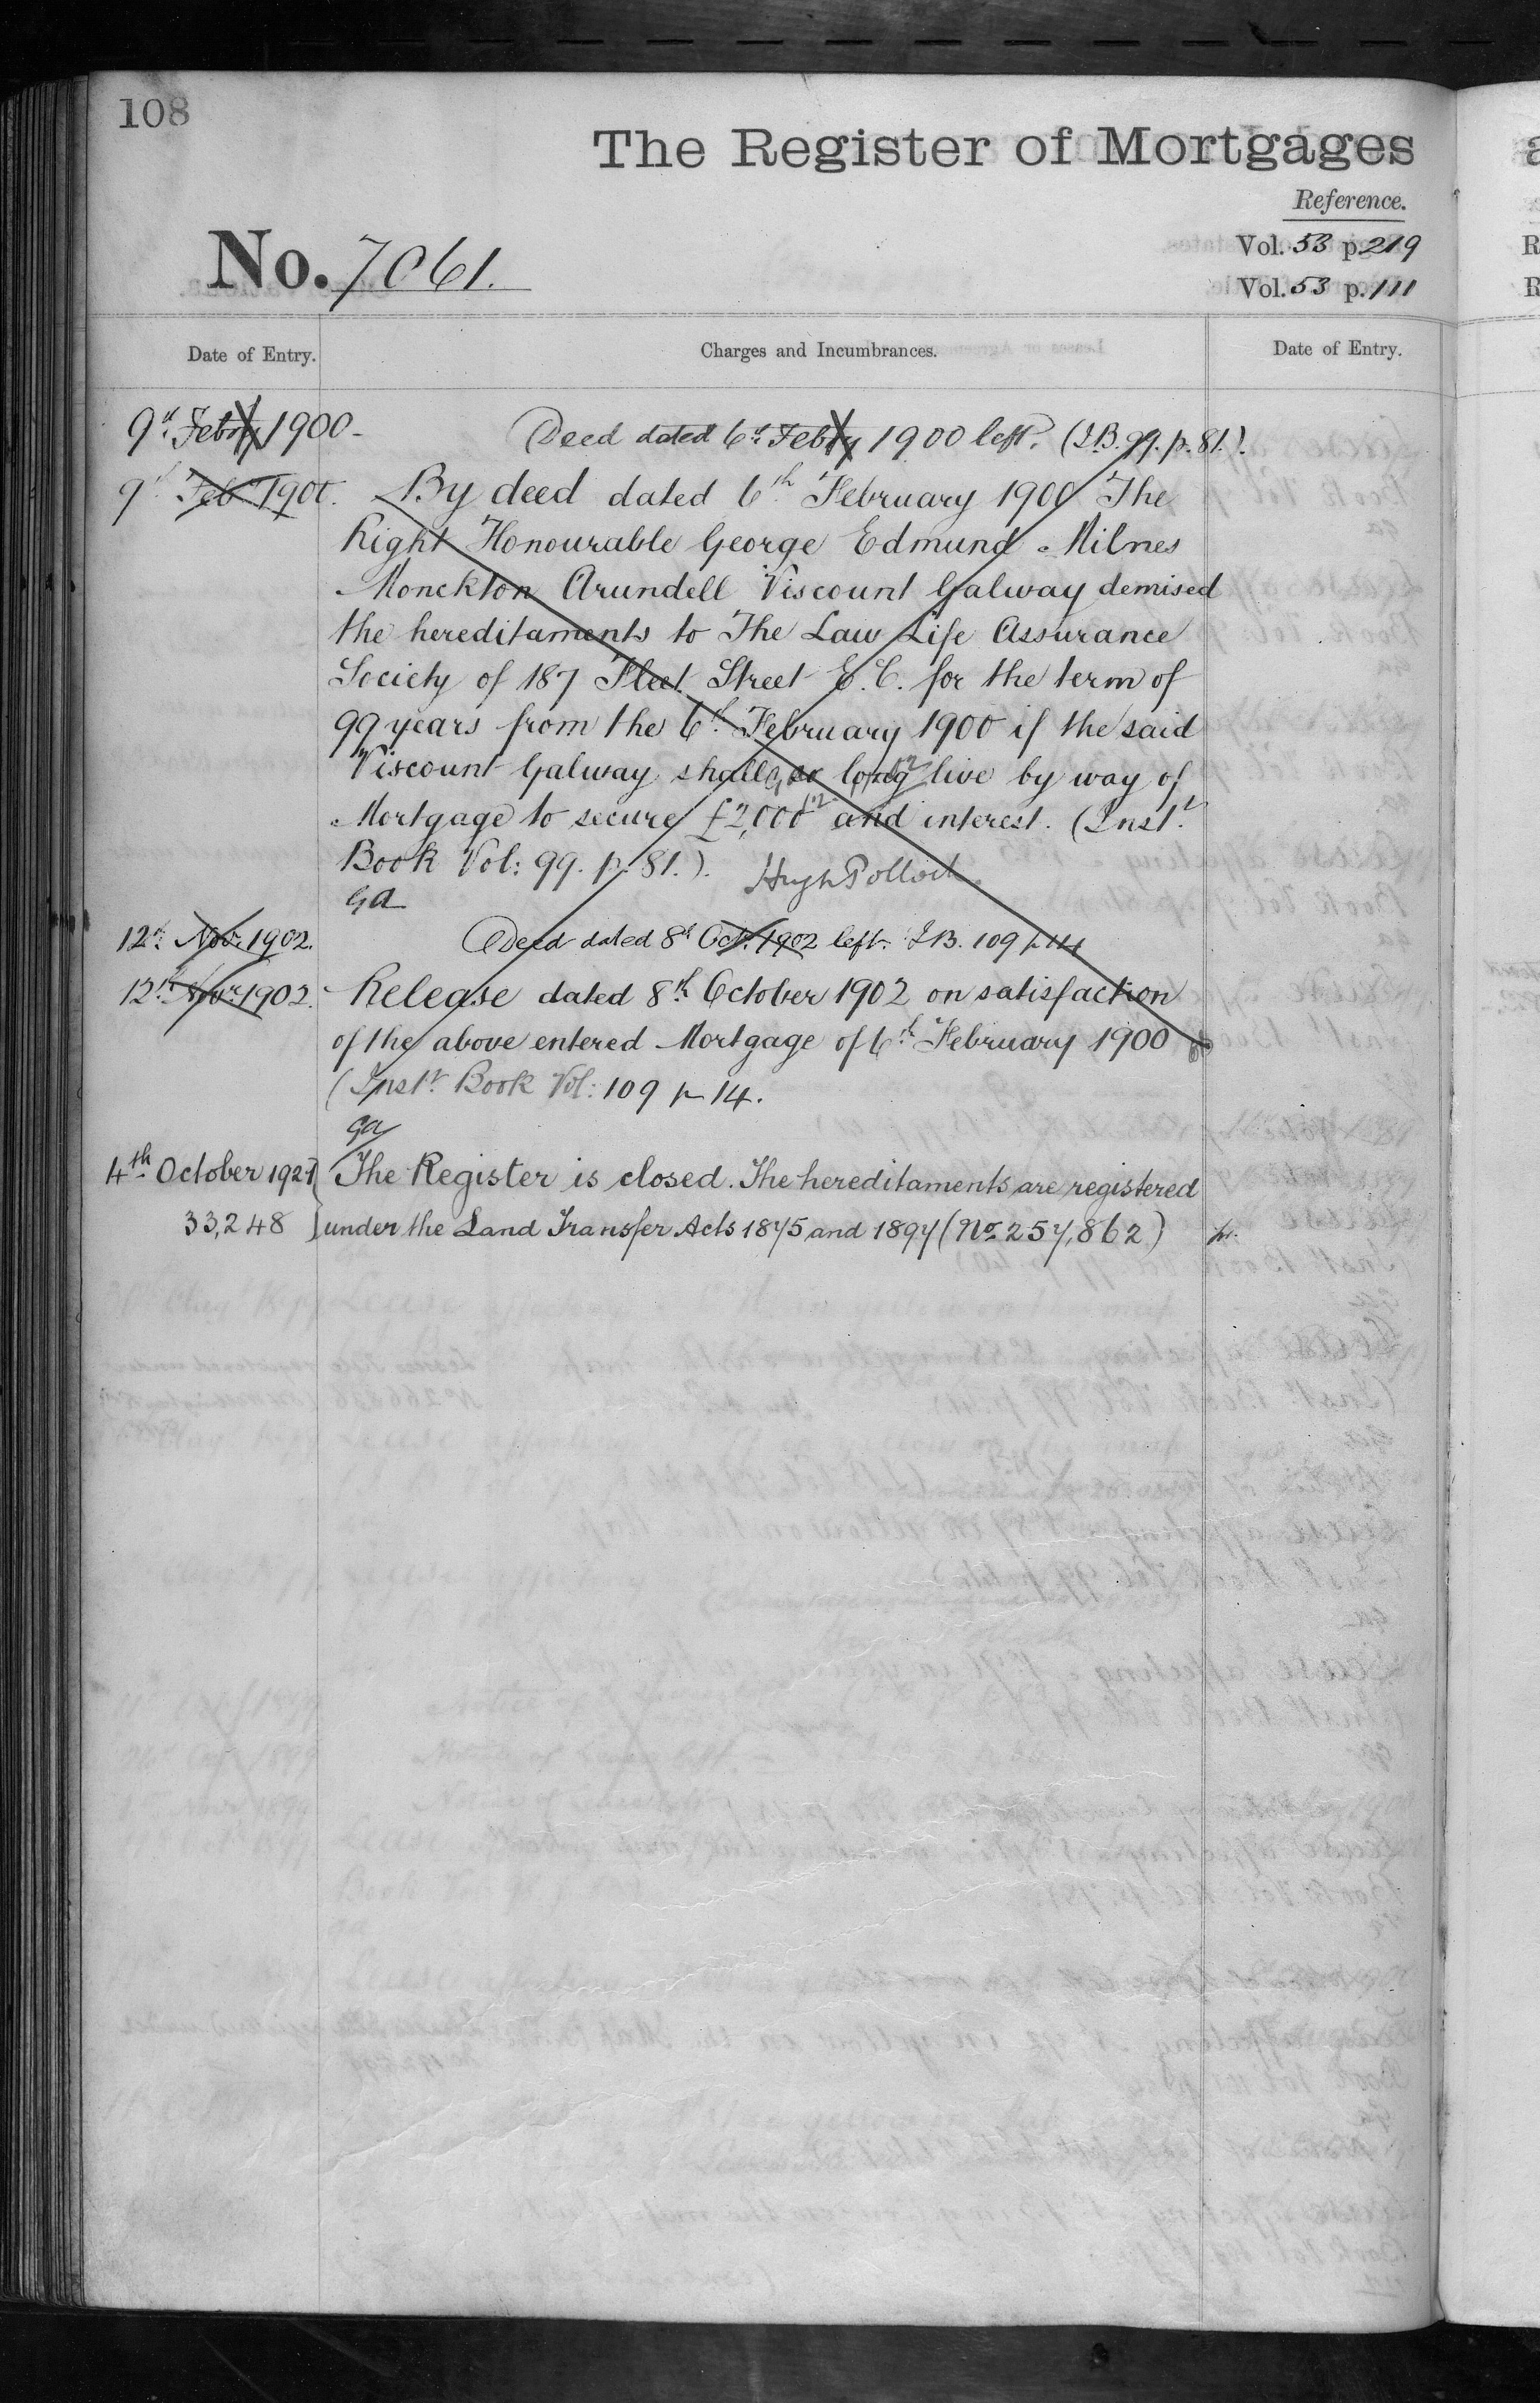 108
The Register of Mortgages
Reference.
No. 7061.
Vol. 53 p. 219
Vol. 53 p. 111
Date of Entry.
Charges and Incumbrances.
Date of Entry.
9th Febry 1900- Deed dated 6th Febry 1900 left. (I.B. 99. p. 81.).
9th Feb 1900. By deed dated 6th February 1900 The
Right Honourable George Edmund Milnes
Monckton Arundell Viscount Galway demised
the hereditaments to The Law Life Assurance
Society of 187 Fleet Street E.C. for the term of
99 years from the 6th February 1900 if the said
Viscount Galway shall so long live by way of
Mortgage to secure £2,000 and interest. (Instt
Book Vol: 99. p. 81.). Hugh Pollock
GA
12th Novr 1902. Deed dated 8th Oct. 1902 left. I.B. 109 p 14
12th Novr 1902. Release dated 8th October 1902 on satisfaction
of the above entered Mortgage of 6th February 1900
(Instt Book Vol: 109 p 14.
GA
4th October 1921 The Register is closed. The hereditaments are registered
33,248 under the Land Transfer Acts 1875 and 1897 (No 257,862)